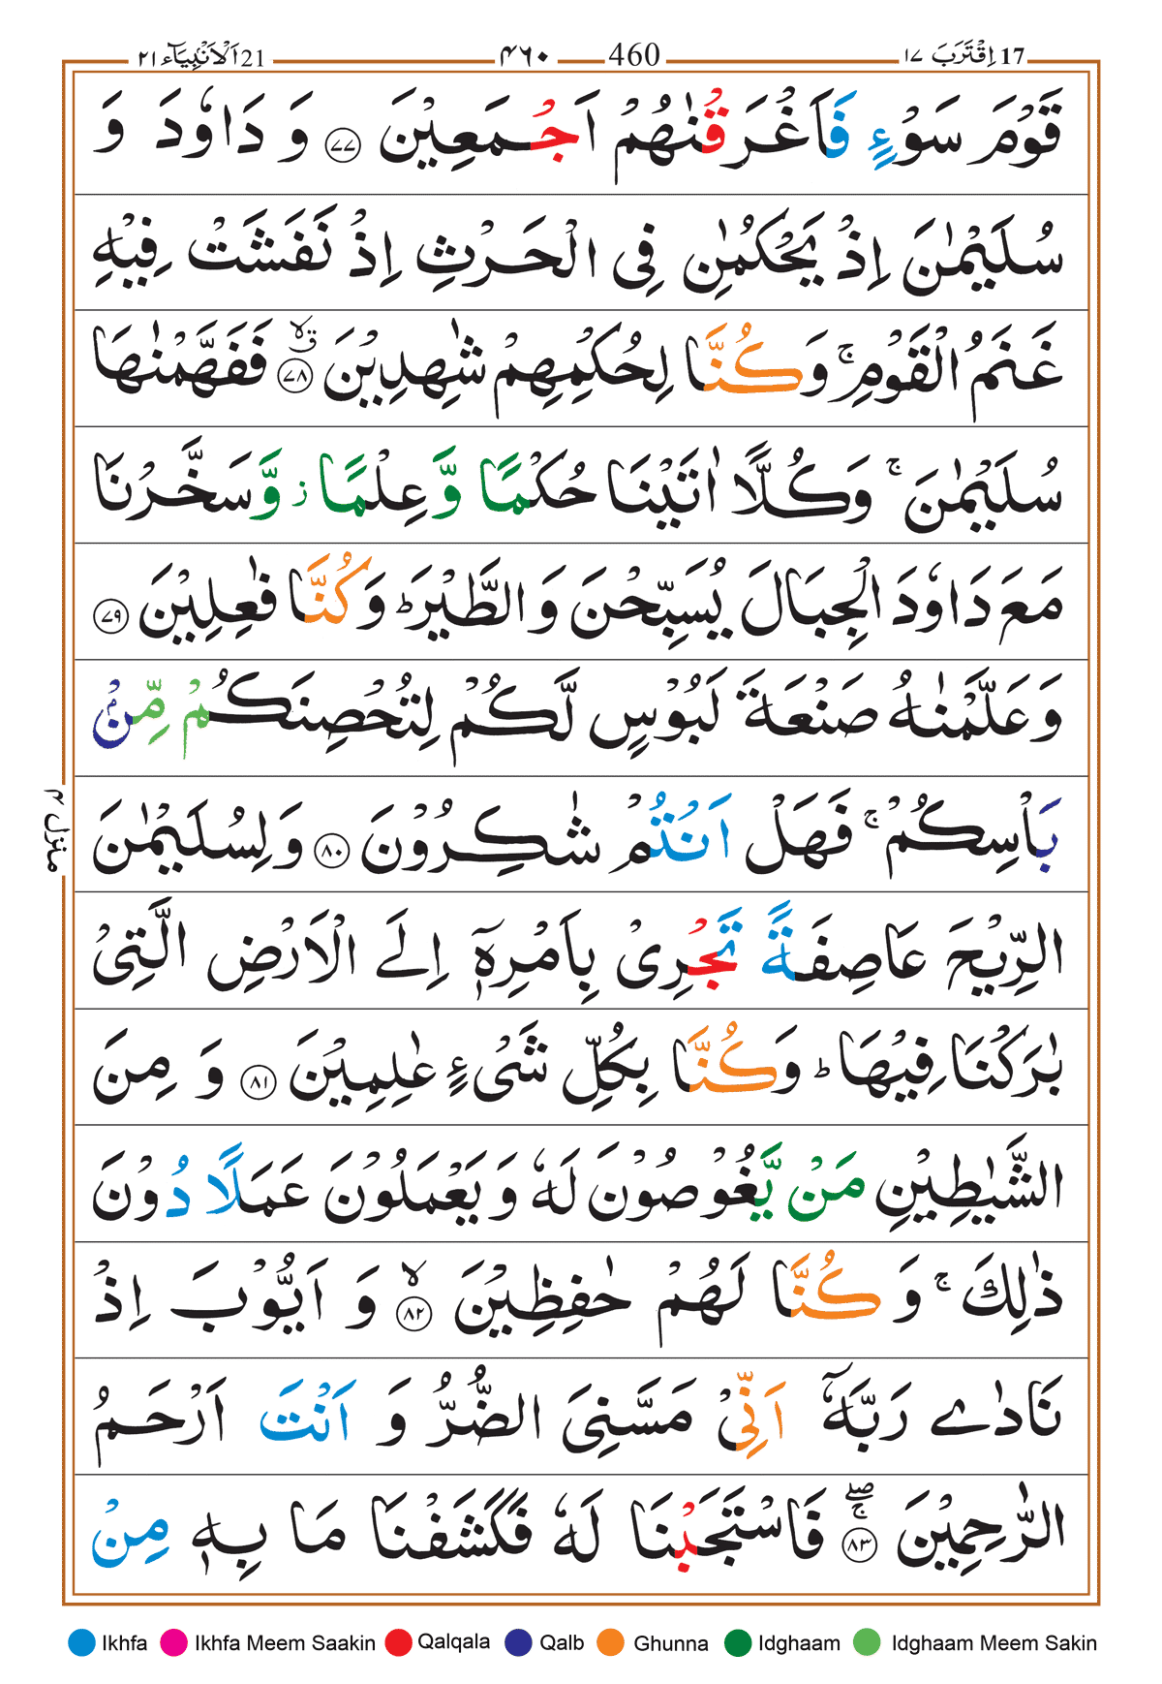 17 اِقْتَرَبَ ١٧ 460 ۴۶۰ 21 اَلْاَنْۢبِيَآء ٢١
قَوْمَ سَوْءٍ فَاَغْرَقْنٰهُمْ اَجْمَعِيْنَ ﴿۷۷﴾ وَ دَاوٗدَ وَ
سُلَيْمٰنَ اِذْ يَحْكُمٰنِ فِى الْحَرْثِ اِذْ نَفَشَتْ فِيْهِ
غَنَمُ الْقَوْمِ ۚ وَكُنَّا لِحُكْمِهِمْ شٰهِدِيْنَ ﴿۷۸﴾ ۙق فَفَهَّمْنٰهَا
سُلَيْمٰنَ ۚ وَكُلًّا اٰتَيْنَا حُكْمًا وَّعِلْمًا ز وَّسَخَّرْنَا
مَعَ دَاوٗدَ الْجِبَالَ يُسَبِّحْنَ وَالطَّيْرَ ؕ وَكُنَّا فٰعِلِيْنَ ﴿۷۹﴾
وَعَلَّمْنٰهُ صَنْعَةَ لَبُوْسٍ لَّكُمْ لِتُحْصِنَكُمْ مِّنْۢ
بَاْسِكُمْ ۚ فَهَلْ اَنْتُمْ شٰكِرُوْنَ ﴿۸۰﴾ وَلِسُلَيْمٰنَ
الرِّيْحَ عَاصِفَةً تَجْرِىْ بِاَمْرِهٖۤ اِلَى الْاَرْضِ الَّتِىْ
بٰرَكْنَا فِيْهَا ؕ وَكُنَّا بِكُلِّ شَىْءٍ عٰلِمِيْنَ ﴿۸۱﴾ وَ مِنَ
الشَّيٰطِيْنِ مَنْ يَّغُوْصُوْنَ لَهٗ وَيَعْمَلُوْنَ عَمَلًا دُوْنَ
ذٰلِكَ ۚ وَكُنَّا لَهُمْ حٰفِظِيْنَ ﴿۸۲﴾ ۙ وَ اَيُّوْبَ اِذْ
نَادٰى رَبَّهٗۤ اَنِّىْ مَسَّنِىَ الضُّرُّ وَ اَنْتَ اَرْحَمُ
الرّٰحِمِيْنَ ﴿۸۳﴾ ۚۖ فَاسْتَجَبْنَا لَهٗ فَكَشَفْنَا مَا بِهٖ مِنْ
منزل ۴
Ikhfa Ikhfa Meem Saakin Qalqala Qalb Ghunna Idghaam Idghaam Meem Sakin